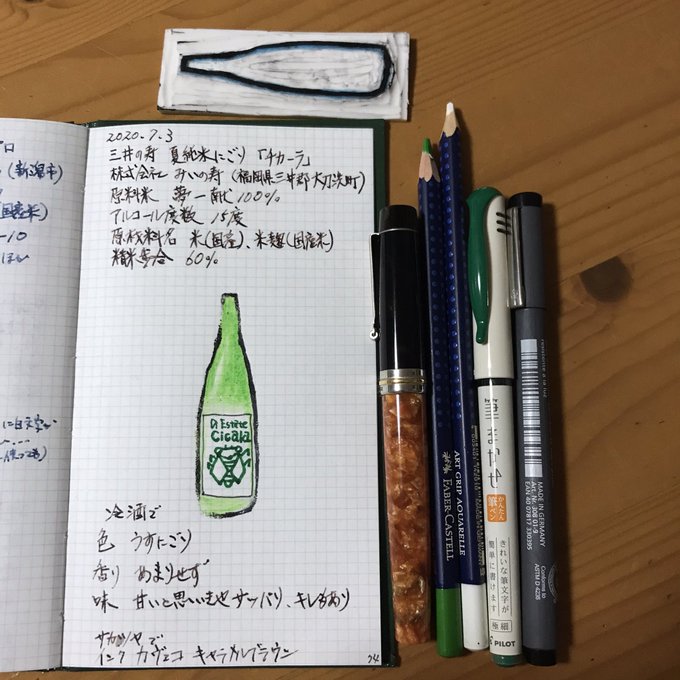 2020.7.3
三井の寿 夏純米にごり 「チカーラ」
株式会社 みいの寿 (福岡県三井郡大刀洗町)
原料米 夢一献 100%
アルコール度数 15度
原材料名 米(国産)、米麹(国産米)
精米歩合 60%
Di Estate
Cicala
冷酒で
色 うすにごり
香り あまりせず
味 甘いと思いきやサッパリ、キレもあり
インク カヴェコ キャラメルブラウン
24
(新潟市)
国産米)
-10
ART GRIP AQUARELLE
FABER-CASTELL
筆まかせ
かんたん
筆ペン
きれいな筆文字が
簡単に書けます
極細
PILOT
MADE IN GERMANY
Art. Nr. 308 01-9
EAN 40 07817 330395
Conforms to
ASTM D 4236